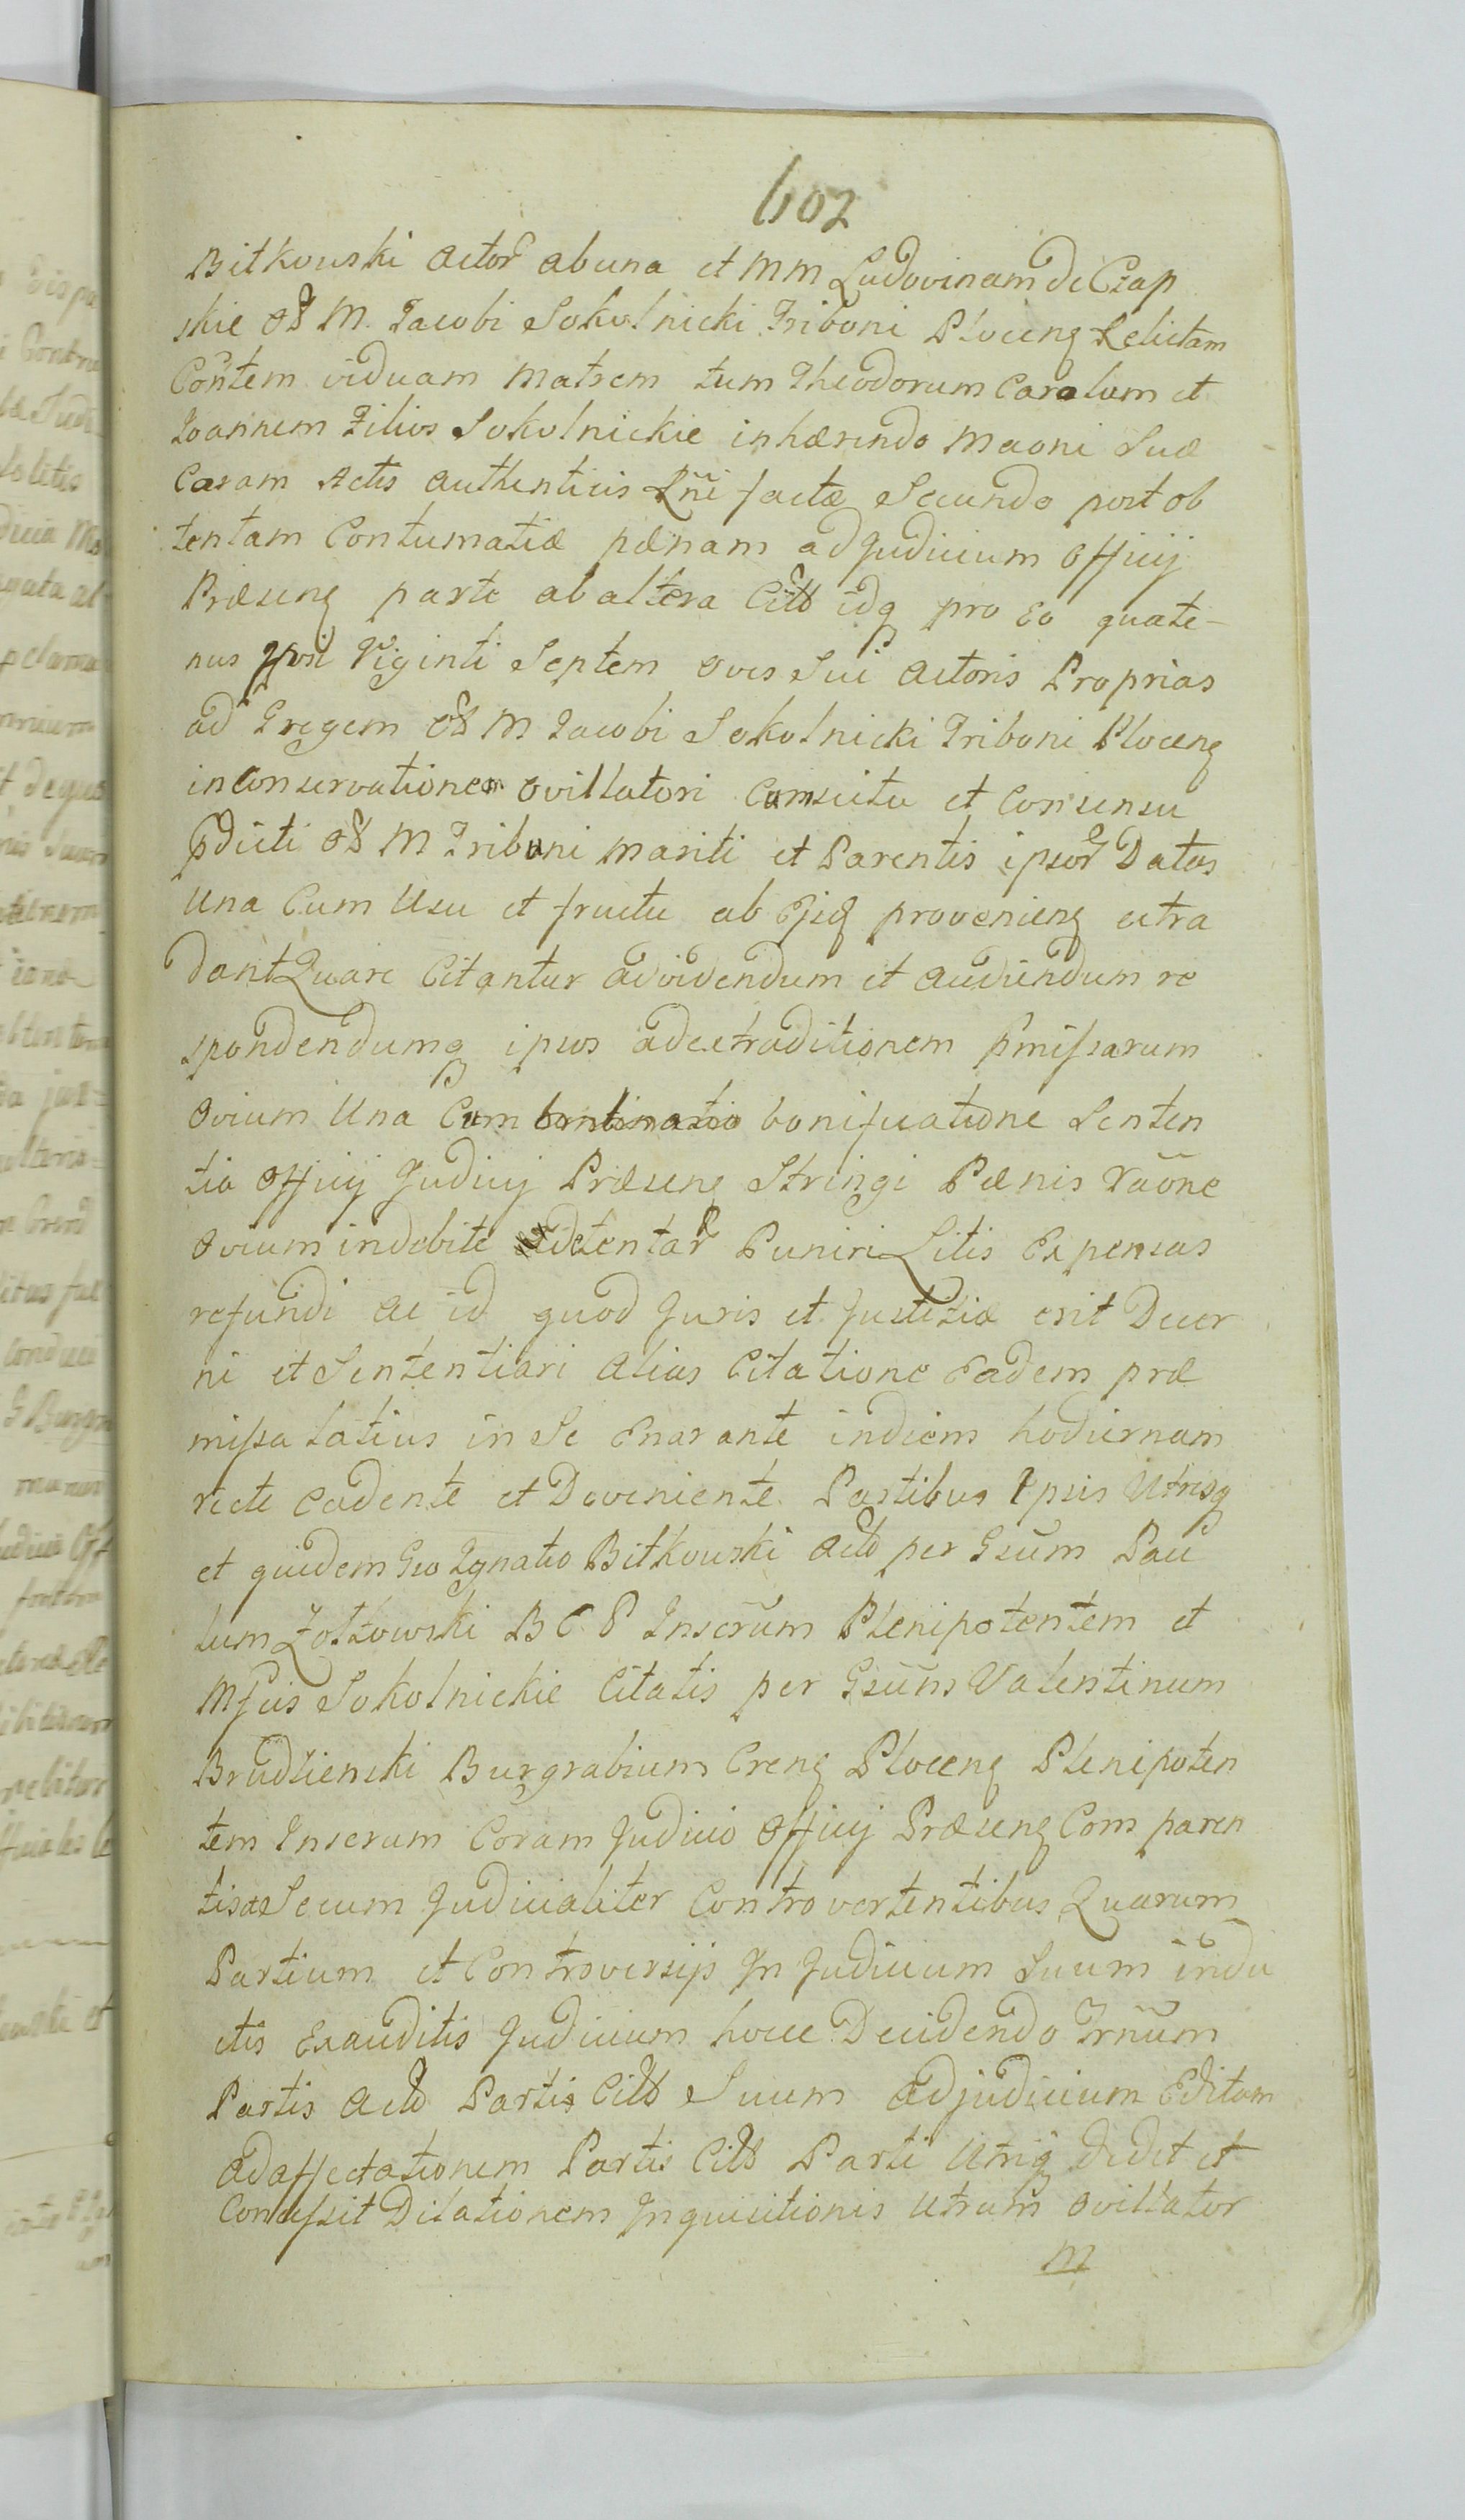 602
Bitkowski Actor ab una et MM Ludovinam de Czap
skie Ol M. Jacobi Sokolnicki Tribuni Ploceng Relictam
Contem viduam Matrem tum Theodorum Carolum et
Joannem Filios Sokolnickie inhærendo Maoni Suæ
Coram Actis Authenticis Rñi factæ Secundo post ob
tentam Contumatiæ pænam ad Judicium Officij
Præseng parte ab altera Citt idq pro eo quate-
nus Ipsi Viginti Septem oves Sui Actoris Proprias
ad Gregem Ol M Jacobi Sokolnicki Tribuni Ploceng
in Conservationem ovillatori Cumscitu et Consensu
pdicti Ol M Tribuni Mariti et Parentis ipsor Datas
Una Cum Usu et fructu ab Ijsq provenieng extra
dant Quare Citantur ad videndum et Audiendum re
spondendumq ipsos ad extraditionem pmissarum
Ovium Una Cum bonificatione Senten
tia Officij Judicij Præseng Stringi Pænis raõne
Ovium indebite detentar Puniri Litis Expensas
refundi ac id quod Juris et Justitiæ erit Decer
ni et Sententiari Alias Citatione Eadem præ
missa latius in Se Enarante in diem hodiernam
recte Cadente et Deveniente Partibus Ipsis Utrisq
et quidem Gso Ignatio Bitkowski Act per Gsum Pau
lum Zołtowski B C P Inserũm Plenipotentem et
Mfcis Sokolnickie Citatis per Gsũm Valentinum
Brudzienski Burgrabium Creng Ploceng Plenipoten
tem Inserum Coram Judicio Officij Præseng Com paren
tis ac Secum Judicialiter Controvertentibus Quarum
Partium et Controversijs In Judicium Suum indu
ctis Exauditis Judicium hocce Decidendo Trñum
Partis Act Partis Citt Suum ad judicium Editum
ad affectationem Partis Citt Parti Utriq dedit et
Concessit Dilationem Inquisitionis Utrum ovillator
M